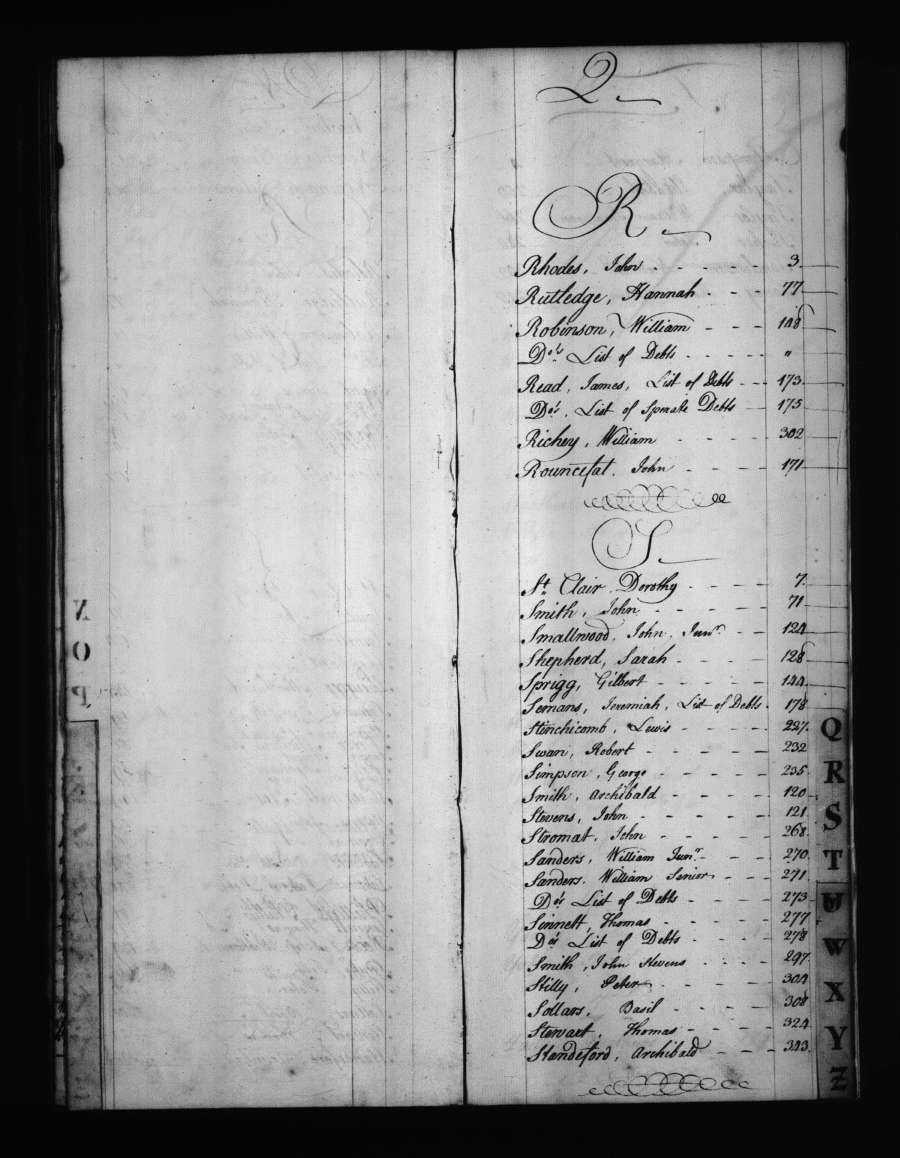 Q
R
Rhodes, John 3
Rutledge, Hannah 77
Robinson, William 148
Dos. List of Debts "
Read, James, List of Debts 173
Dos. List of Sperate Debts 175
Richey, William 302
Rouncefat, John 171
S
St. Clair Dorothy 7
Smith, John 71
Smallwood, John, Junr. 124
Shepherd, Sarah 128
Sprigg, Gilbert 144
Semans, Jeremiah, List of Debts 178
Stinchicomb, Lewis 227
Swan, Robert 232
Simpson, George 235
Smith, Archibald 120
Stevens, John 121
Stromat, John 268
Sanders, William Junr. 270
Sanders, William Senior 271
Dos. List of Debts 273
Sinnett, Thomas 277
Dos. List of Debts 278
Smith, John Stevens 297
Stilly, Peter 304
Sollars, Basil 308
Stewart, Thomas 324
Standeford, Archibald 343
Q
R
S
T
W
X
Y
Z
N
O
P